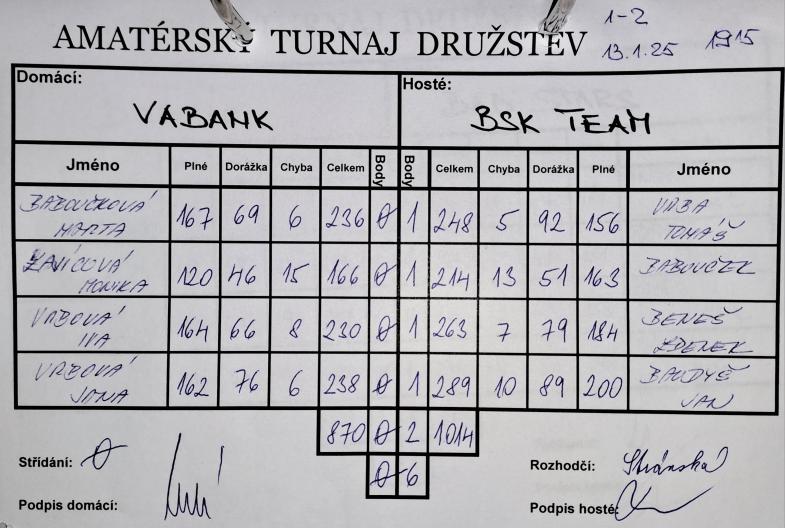 AMATÉRSKÝ TURNAJ DRUŽSTEV 1-2 13.1.25 19 15
Domácí: Hosté:
VABANK BSK TEAM
Jméno Plné Dorážka Chyba Celkem Body Body Celkem Chyba Dorážka Plné Jméno
BABOUČKOVÁ MARTA 167 69 6 236 0 1 248 5 92 156 VRBA TOMÁŠ
MONIKA 120 46 15 166 0 1 214 13 51 163 BABOUČEK
VRBOVÁ IVA 164 66 8 230 0 1 263 7 79 184 BENEŠ ZDENEK
VRBOVÁ JANA 162 76 6 238 0 1 289 10 89 200 BAUDYŠ JAN
870 0 2 1014
0 6
Střídání: 0 Rozhodčí: Stránská
Podpis domácí: Podpis hosté: